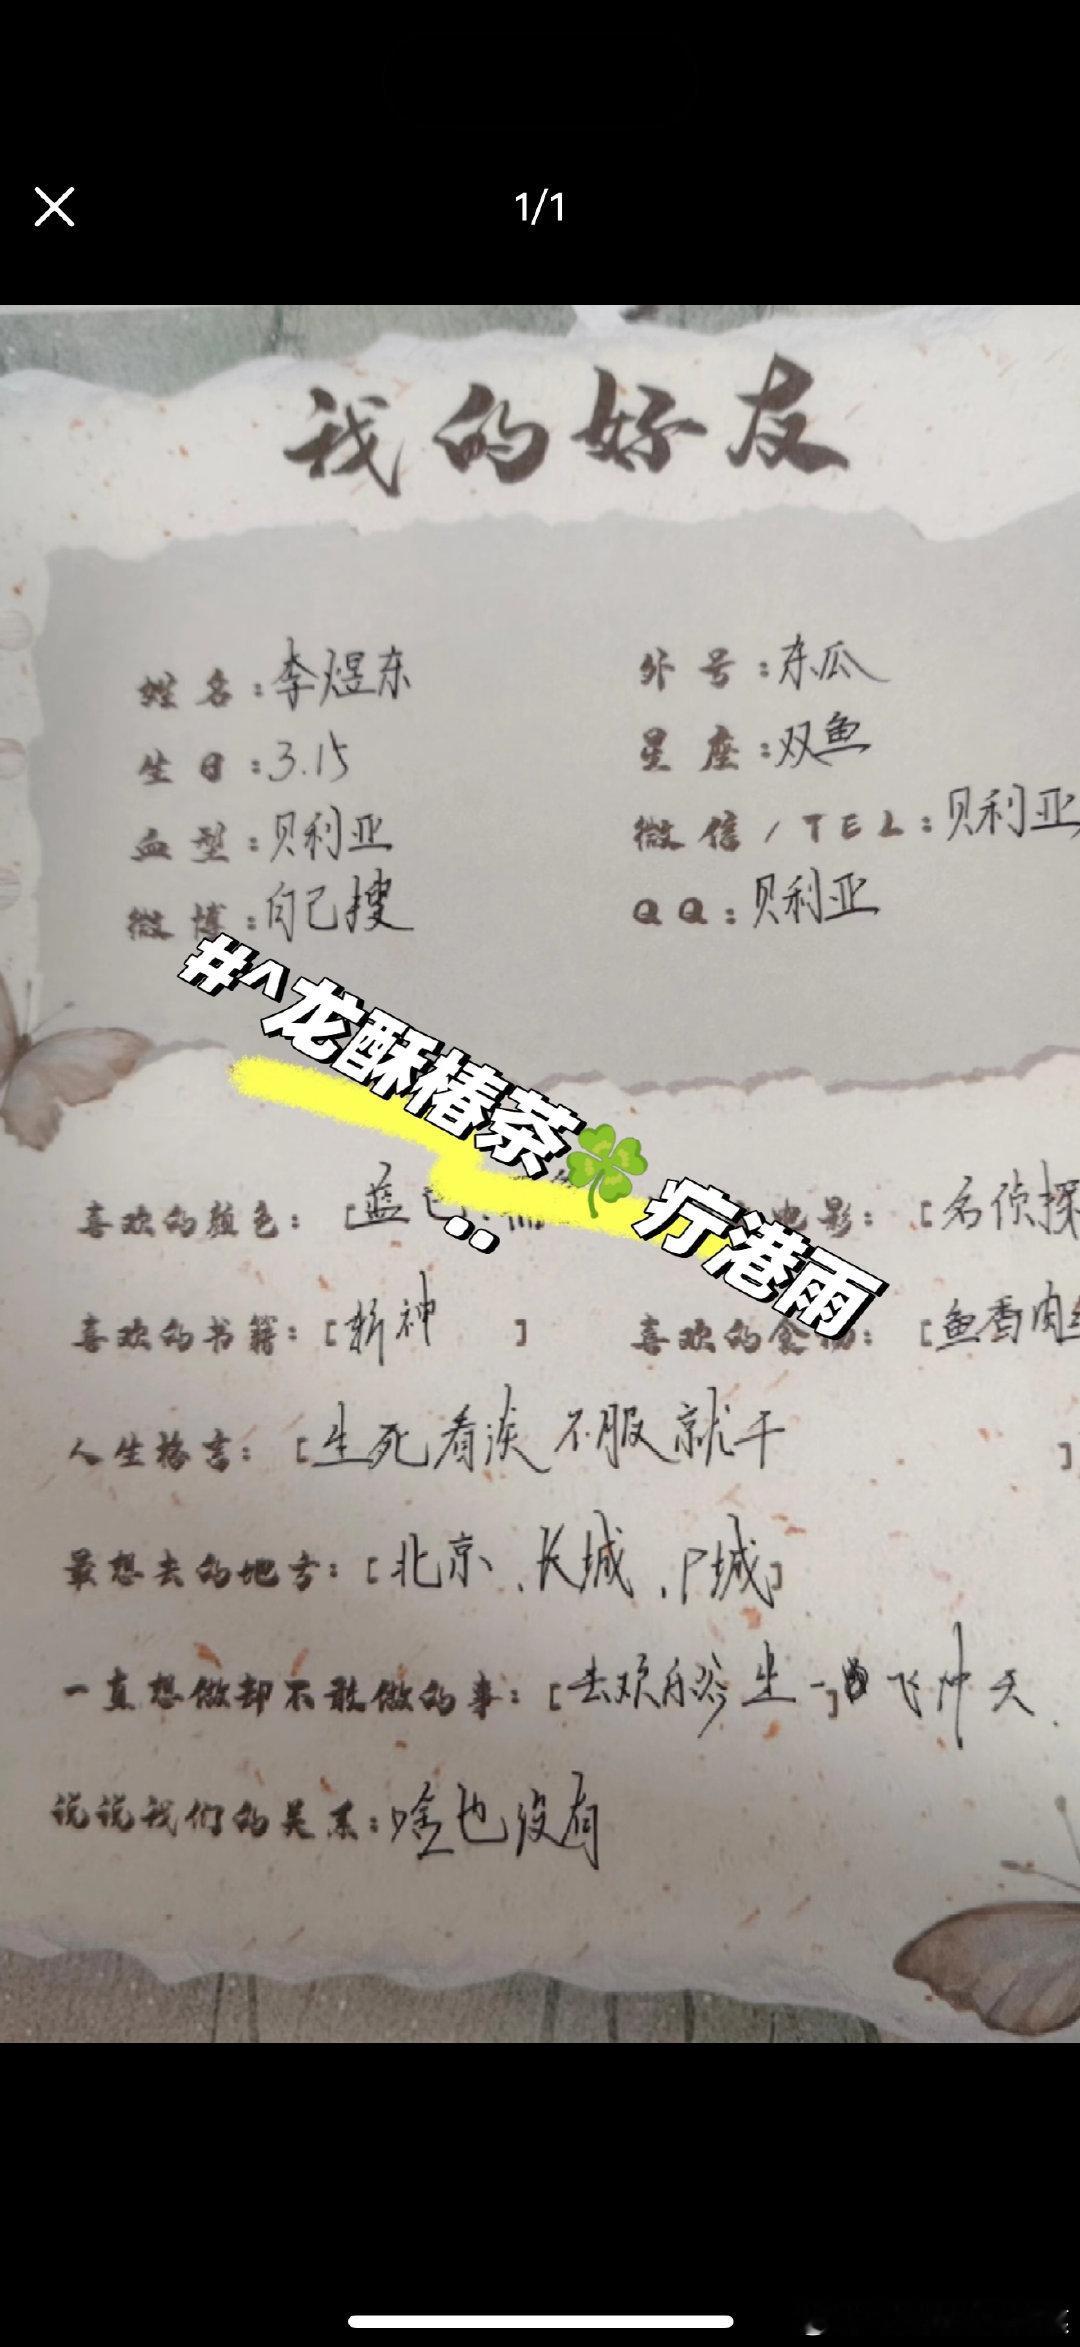 1/1
我的好友
姓名：李煜东
外号：东瓜
生日：3.15
星座：双鱼
血型：贝利亚
微信/TEL：贝利亚
微博：自己搜
QQ：贝利亚
#^龙酥椿茶🍀疗港雨
喜欢的颜色：[蓝
电影：[名侦探
喜欢的书籍：[斩神]
喜欢的食物：[鱼香肉
人生格言：[生死看淡 不服就干]
最想去的地方：[北京、长城、P城]
一直想做却不敢做的事：[去欢乐谷坐一]飞冲天.
说说我们的关系：啥也没有